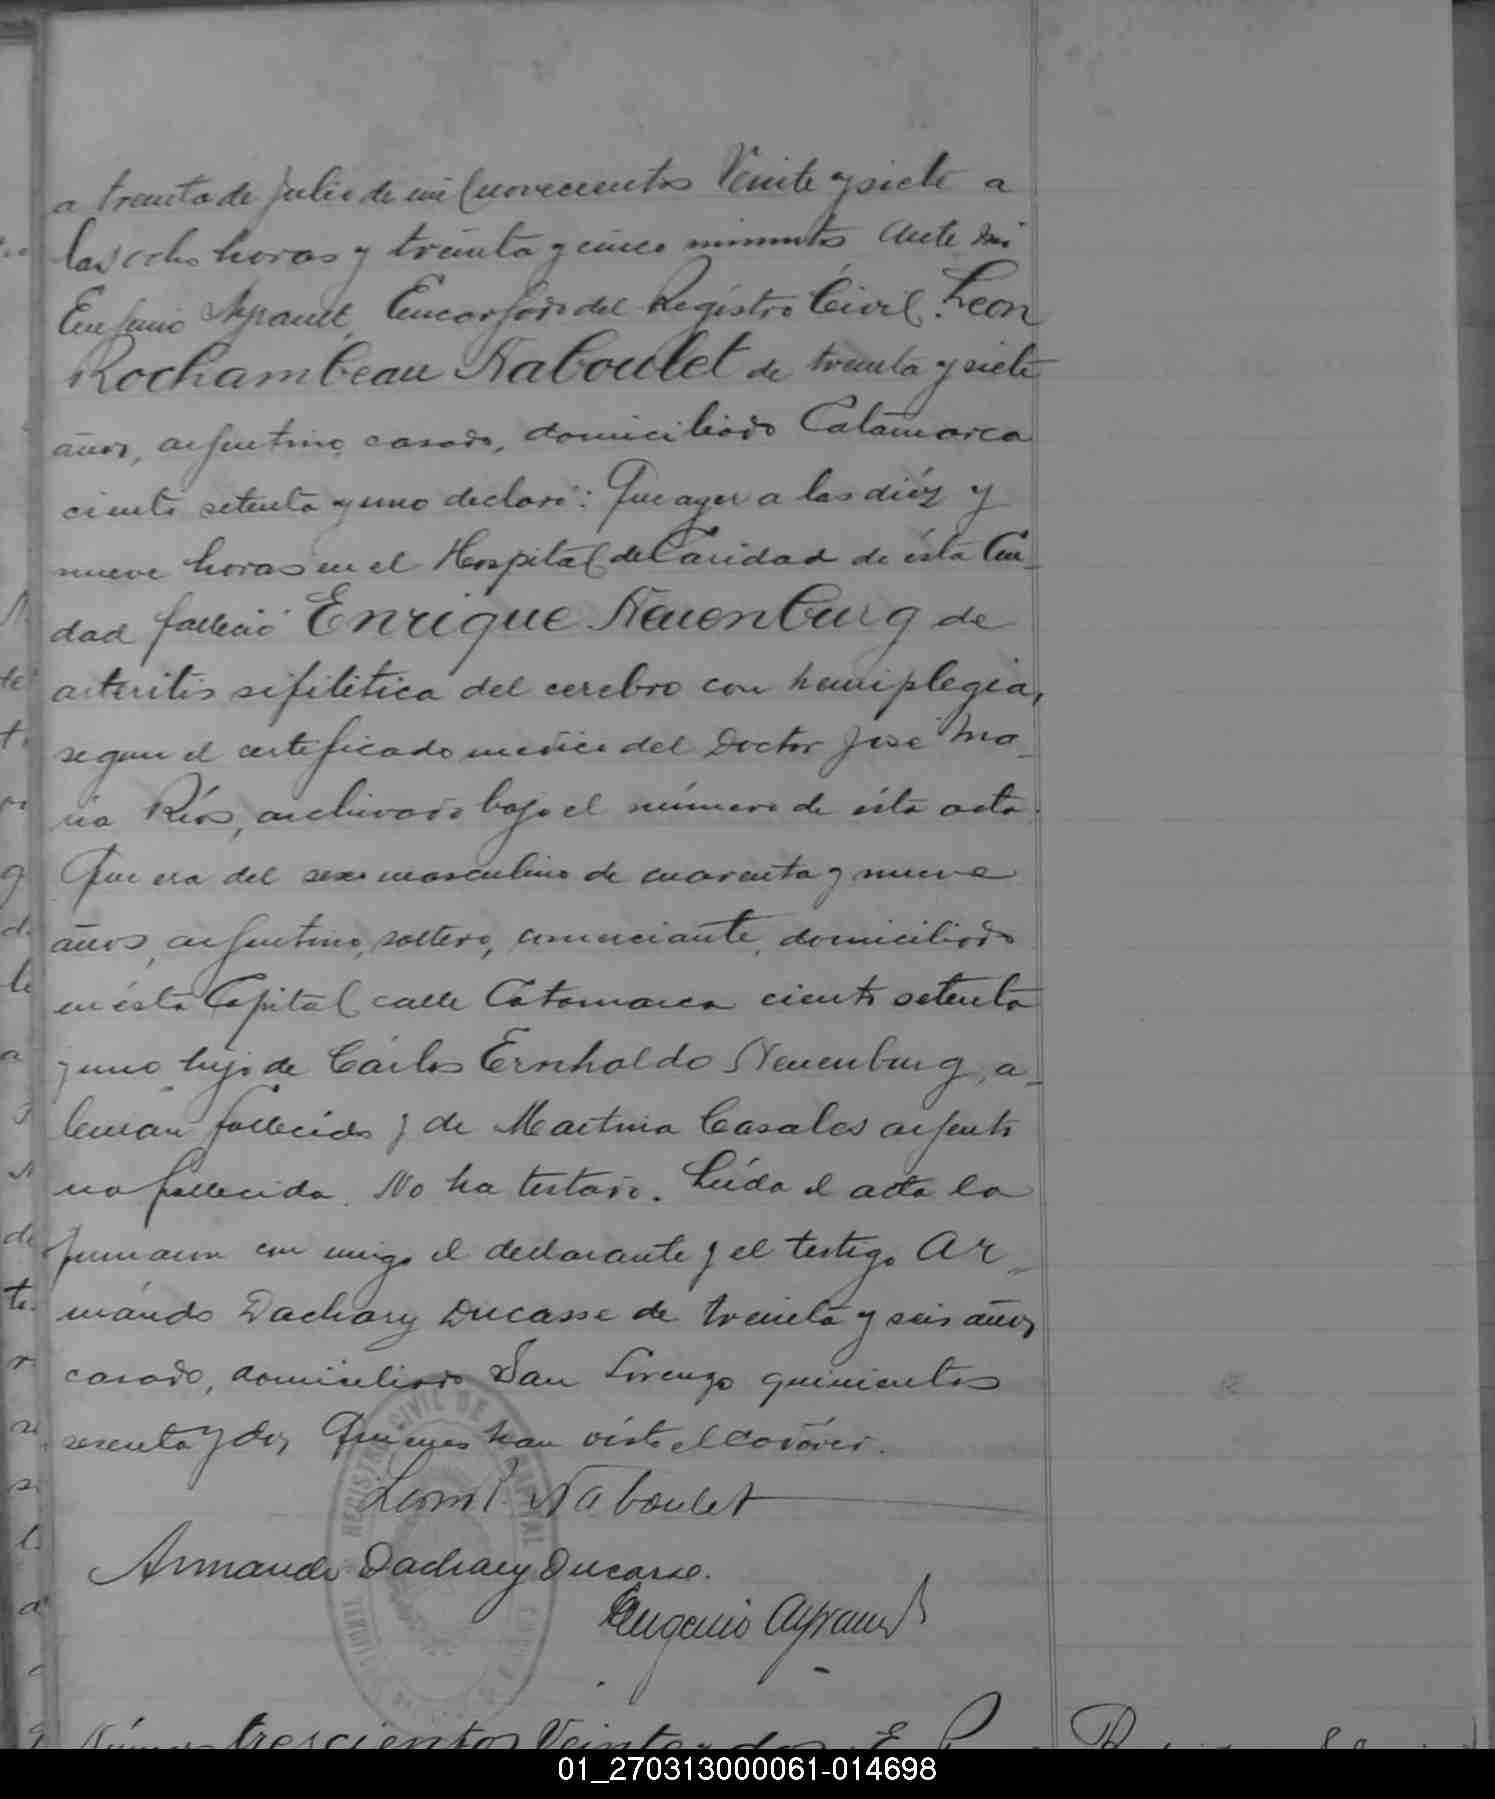 a treinta de Julio de mil novecientos Veinte y siete a
las ocho horas y treinta y cinco minutos ante mi
Eugenio Ayrault, Encargado del Registro Civil. Leon
Rochambeau Naboulet de treinta y siete
años, argentino, casado, domiciliado Catamarca
ciento setenta y uno declaró: Que ayer a las diéz y
nueve horas en el Hospital de Caridad de ésta Ciu_
dad falleció Enrique Neuenburg de
arteritis sifilitica del cerebro con hemiplegia,
segun el certificado medico del Doctor José Ma_
ria Ríos, archivado bajo el número de ésta acta.
Que era del sexo masculino de cuarenta y nueve
años, argentino, soltero, comerciante, domiciliado
en ésta Capital calle Catamarca ciento setenta
y uno hijo de Cárlos Ernholdo Neuenburg, a_
leman fallecido y de Martina Casales argenti
na fallecida. No ha testado. Leída el acta la
firmaron con migo el declarante y el testigo Ar_
mándo Dachary Ducasse de treinta y seis años
casado, domiciliado San Lorenzo quinientos
sesenta y dos Quienes han visto el cadáver.
Leon R. Naboulet
Armando Dachary Ducasse.
Eugenio Ayrault
REGISTRO CIVIL DE CAPITAL
Número trescientos Veinte y dos
01_270313000061-014698